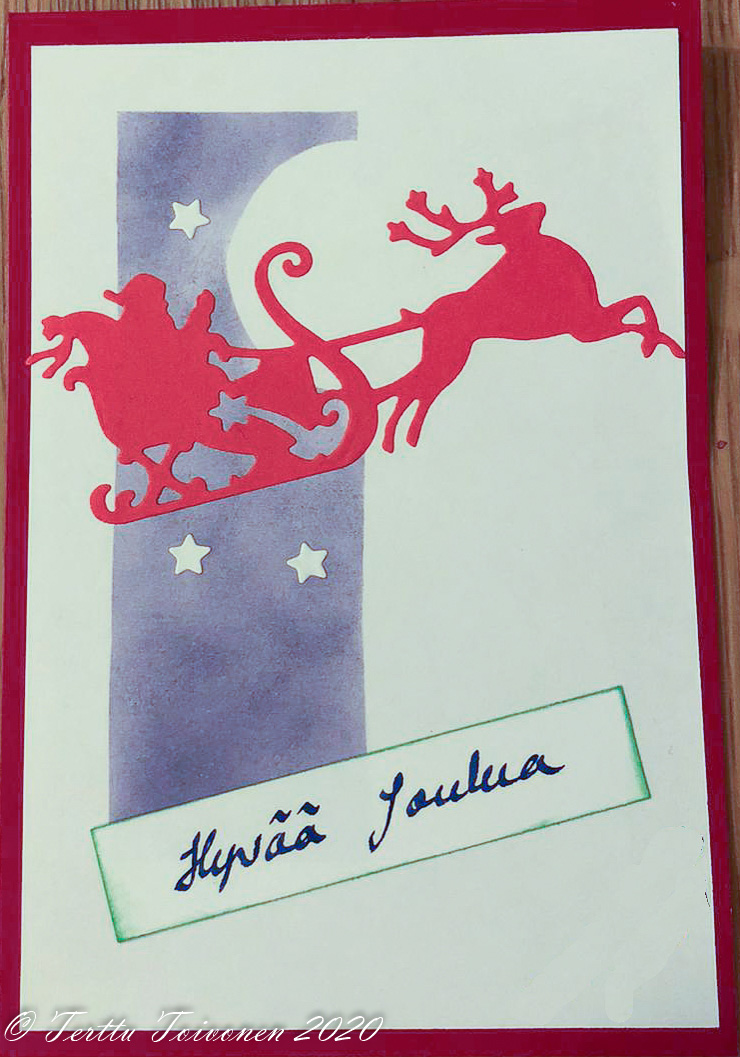 Hyvää Joulua
© Terttu Toivonen 2020